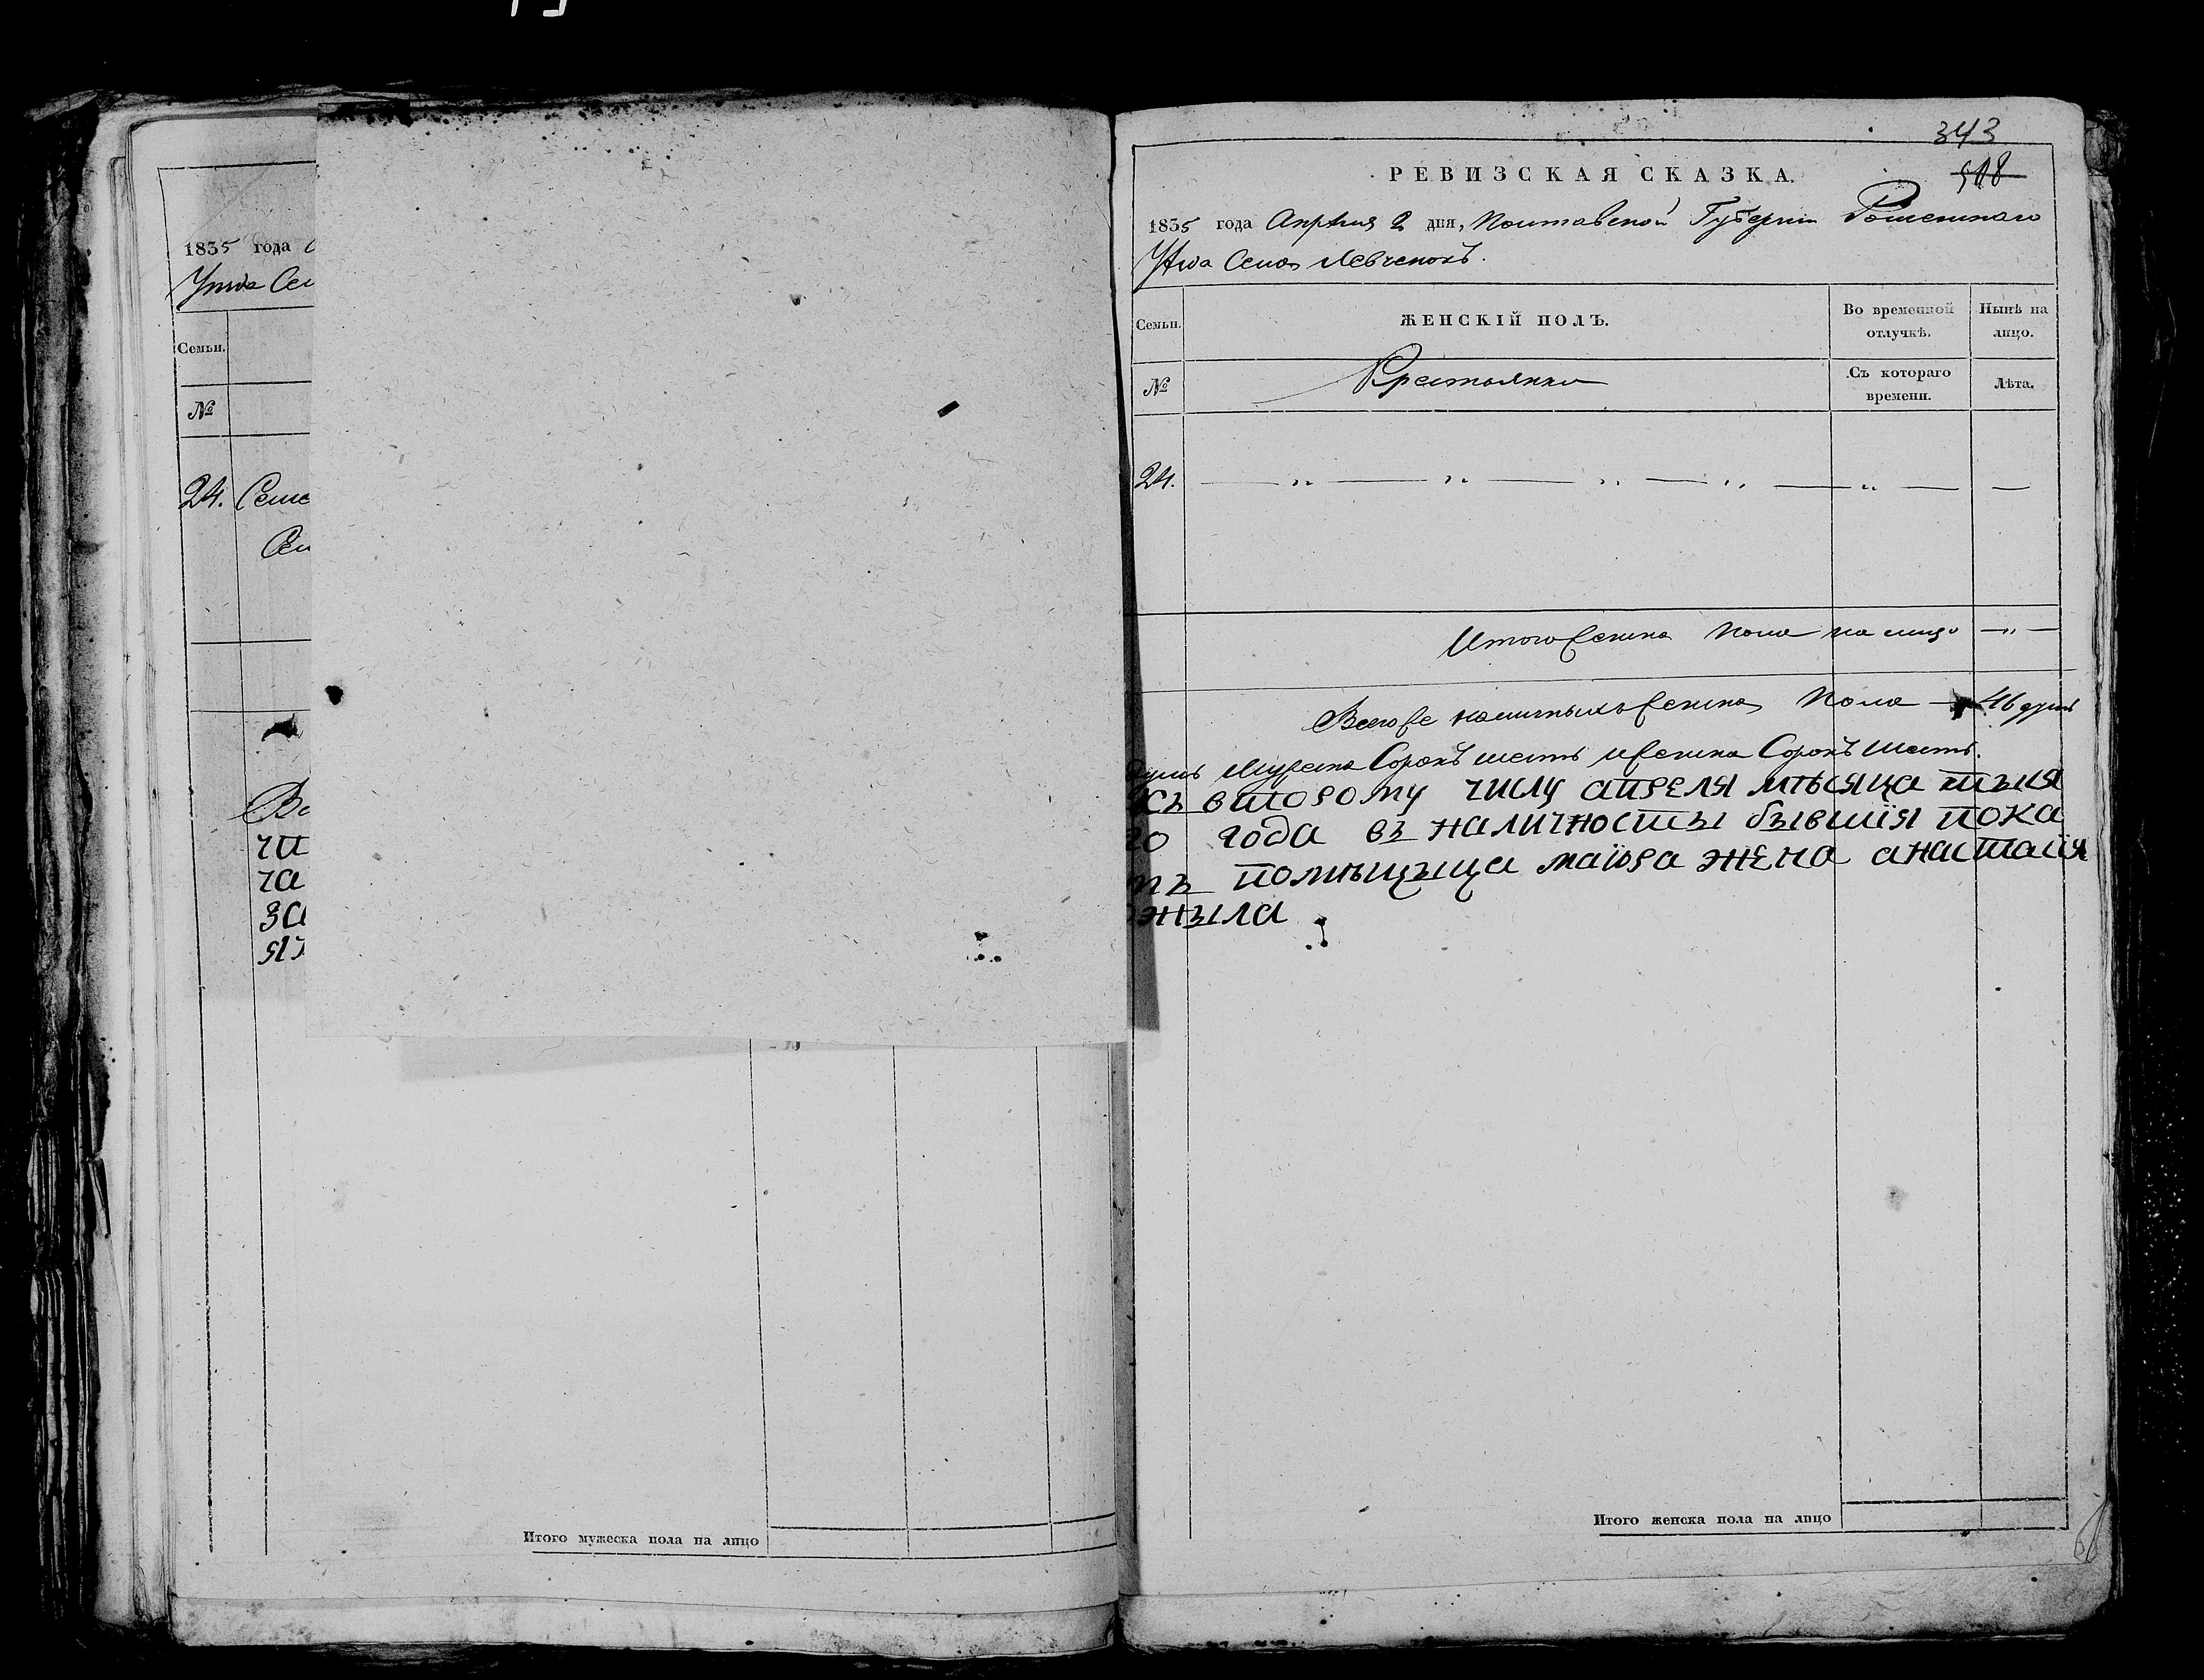 1835 года
Уѣзда Сел
Семьи.
№
24. Семе
Сем
Вс
чи
ча
за
Итого мужеска пола на лицо
343
508
РЕВИЗСКАЯ СКАЗКА.
1835 года Апрѣля 2 дня, Полтавской Губерніи Роменскаго
Уѣзда Села Левченокъ.
Семьи.
ЖЕНСКІЙ ПОЛЪ.
Во временной отлучкѣ.
Нынѣ на лицо.
№
Крестьянки
Съ котораго времени.
Лѣта.
24. — „ — „ — „ — „ — „ — —
Итого женска пола на лицо — „ —
Всего же наличныхъ женска пола — 46 душъ
душъ мужеска Сорокъ шесть и женска Сорокъ шесть.
къ второму числу апреля мѣсяца тыся
го года въ наличносты бывшія пока
помѣщыца маіора жена анастасія
жыла
Итого женска пола на лицо